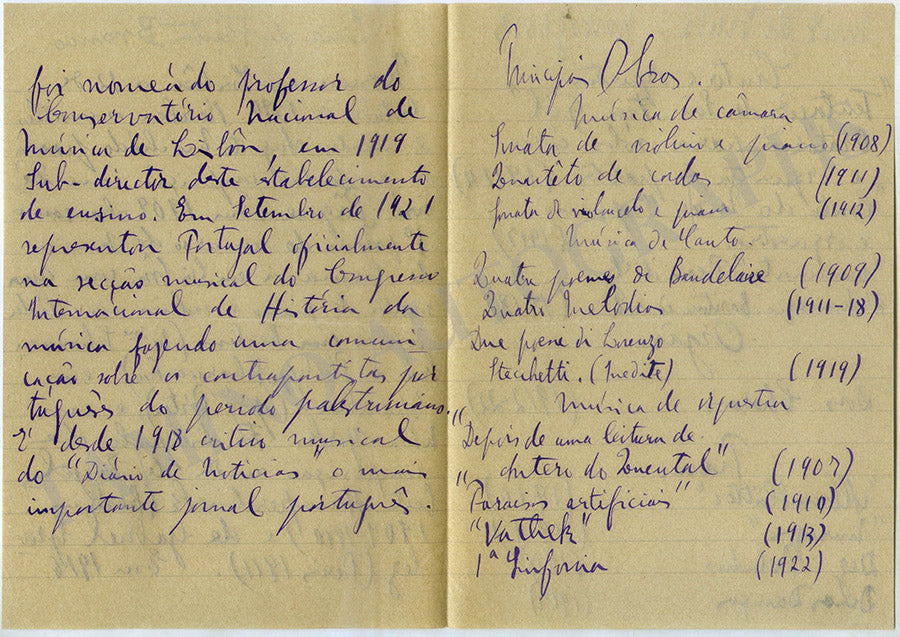 foi nomeado professor do
Conservatório Nacional de
Música de Lisbôa, em 1919
Sub-director deste estabelecimento
de ensino. Em Setembro de 1921
representou Portugal oficialmente
na secção musical do Congresso
Internacional de História da
música fazendo uma comuni-
cação sobre os contrapontistas por
tuguêses do periodo palestriniano.
E' desde 1918 critico musical
do "Diário de Noticias" o mais
importante jornal português.
Principais Obras.
Música de câmara
Sonáta de violino e piano (1908)
Quartêto de cordas (1911)
Sonata de violoncelo e piano (1912)
Música de Canto.
Quatre poémes de Baudelaire (1909)
Quatro Melodias (1911-18)
Due poesie di Lorenzo
Stecchetti. (Inedite) (1919)
Música de orquestra
"Depois de uma leitura de
Antero do Quental" (1907)
"Paraísos artificiais" (1910)
"Vathek" (1913)
1ª Sinfonia (1922)